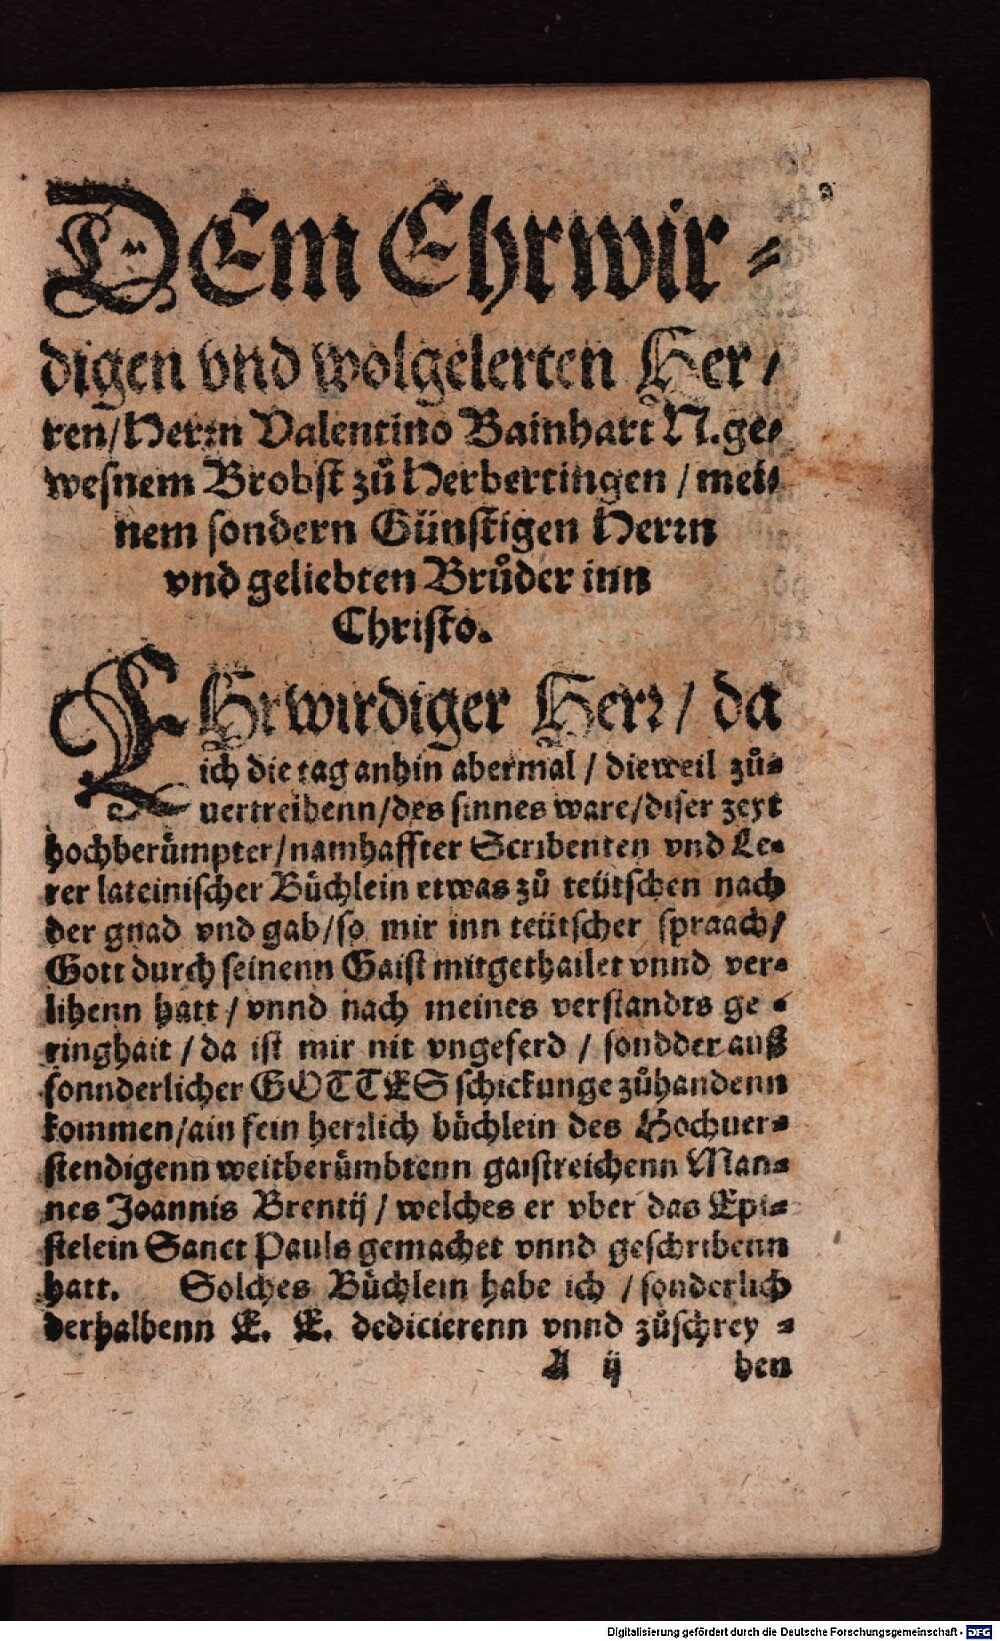 DEm Ehrwir⸗
digen vnd wolgelerten Her/
ren/Herrn Valentino Bainhart N. ge⸗
wesnem Brobst zů Herbertingen / mei⸗
nem sondern Günstigen Herrn
vnd geliebten Brůder inn
Christo.
EHrwirdiger Herr / da
ich die tag anhin abermal / dieweil zů⸗
uertreibenn/des sinnes ware/diser zeyt
hochberümpter/namhaffter Scribenten vnd Le⸗
rer lateinischer Büchlein etwas zů teütschen nach
der gnad vnd gab/so mir inn teütscher spraach/
Gott durch seinenn Gaist mitgethailet vnnd ver⸗
lihenn hatt / vnnd nach meines verstandts ge⸗
ringhait / da ist mir nit vngeferd / sondder auß
sonnderlicher GOTTES schickunge zůhandenn
kommen/ain fein herrlich büchlein des Hochuer⸗
stendigenn weitberümbtenn gaistreichenn Man⸗
nes Joannis Brentij / welches er vber das Epi⸗
stelein Sanct Pauls gemachet vnnd geschribenn
hatt. Solches Büchlein habe ich / sonderlich
derhalbenn E. E. dedicierenn vnnd zůschrey⸗
A ij ben
Digitalisierung gefördert durch die Deutsche Forschungsgemeinschaft - DFG